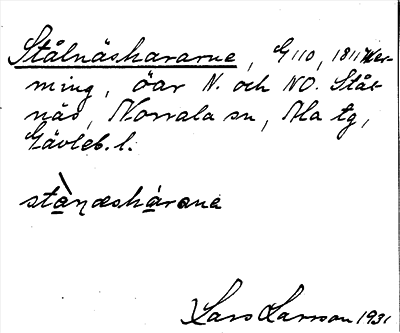 Stålnäshararne, G 110, 1811 Her-
ming, öar N. och NO. Stål-
näs, Norrala sn, Ala tg,
Gävleb. l.
stànæshárana
Lars Larsson 1931